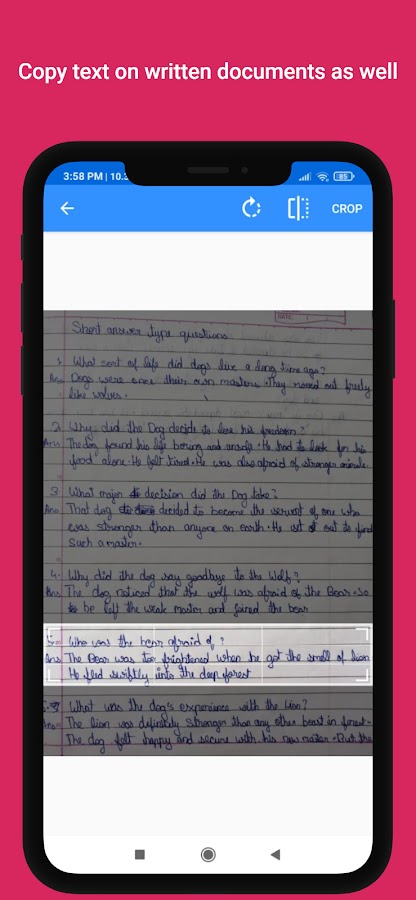 Copy text on written documents as well
3:58 PM | 10.3
85
CROP
DATE
Short answer type questions
1. What sort of life did dogs live a long time ago?
Ans. Dogs were once their own masters. They moved out freely
like wolves.
2. Why did the Dog decide to lose his freedom?
Ans. The dog found his life boring and unsafe. He had to look for his
food alone. He felt tired. He was also afraid of stronger animals.
3. What major decision did the Dog take?
Ans. That dog decided to become the servant of one who
was stronger than anyone on earth. He set out to find
such a master.
4. Why did the dog say goodbye to the Wolf?
Ans. The dog noticed that the wolf was afraid of the Bear. So
he left the weak master and joined the bear
5. Who was the bear afraid of?
Ans The Bear was too frightened when he got the smell of lion
He fled swiftly into the deep forest
What was the dog's experience with the Lion?
The lion was definitely stronger than any other beast in forest.
The dog felt happy and secure with his new master. But the